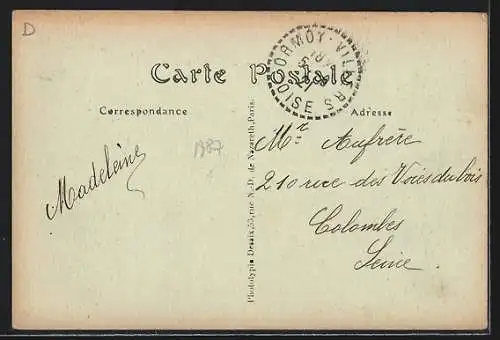 D
ORMOY-VILLERS
OISE
Carte Postale
Correspondance
Adresse
1987
Madeleine
Phototypie Desaix, 53, rue N.-D. de Nazareth, Paris.
Mr Aufrère
210 rue des Voies du bois
Colombes
Seine